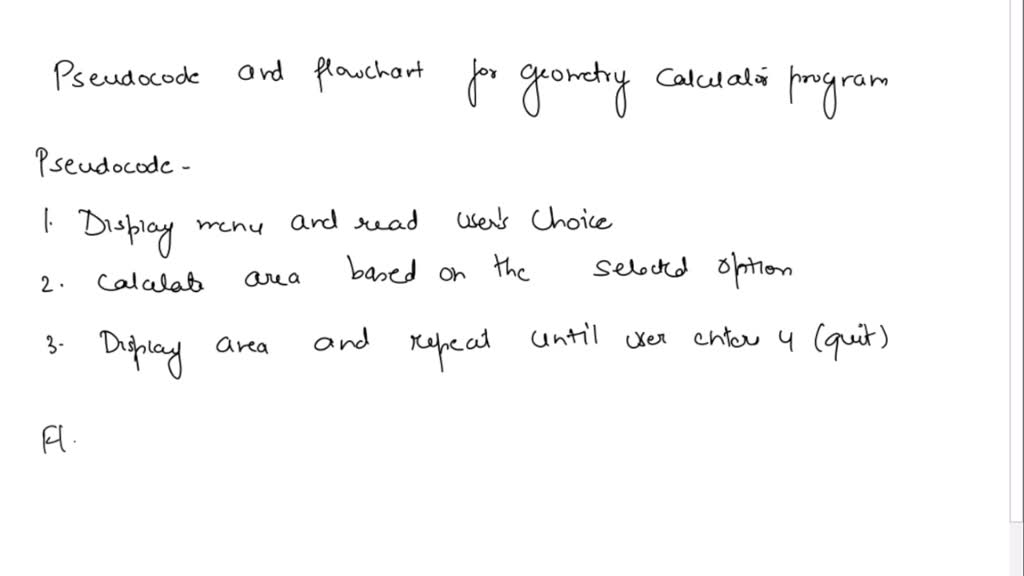 Pseudocode and flowchart for geometry calculator program
Pseudocode -
1. Display menu and read user's choice
2. Calculate area based on the selected option
3. Display area and repeat until user enter 4 (quit)
Fl.